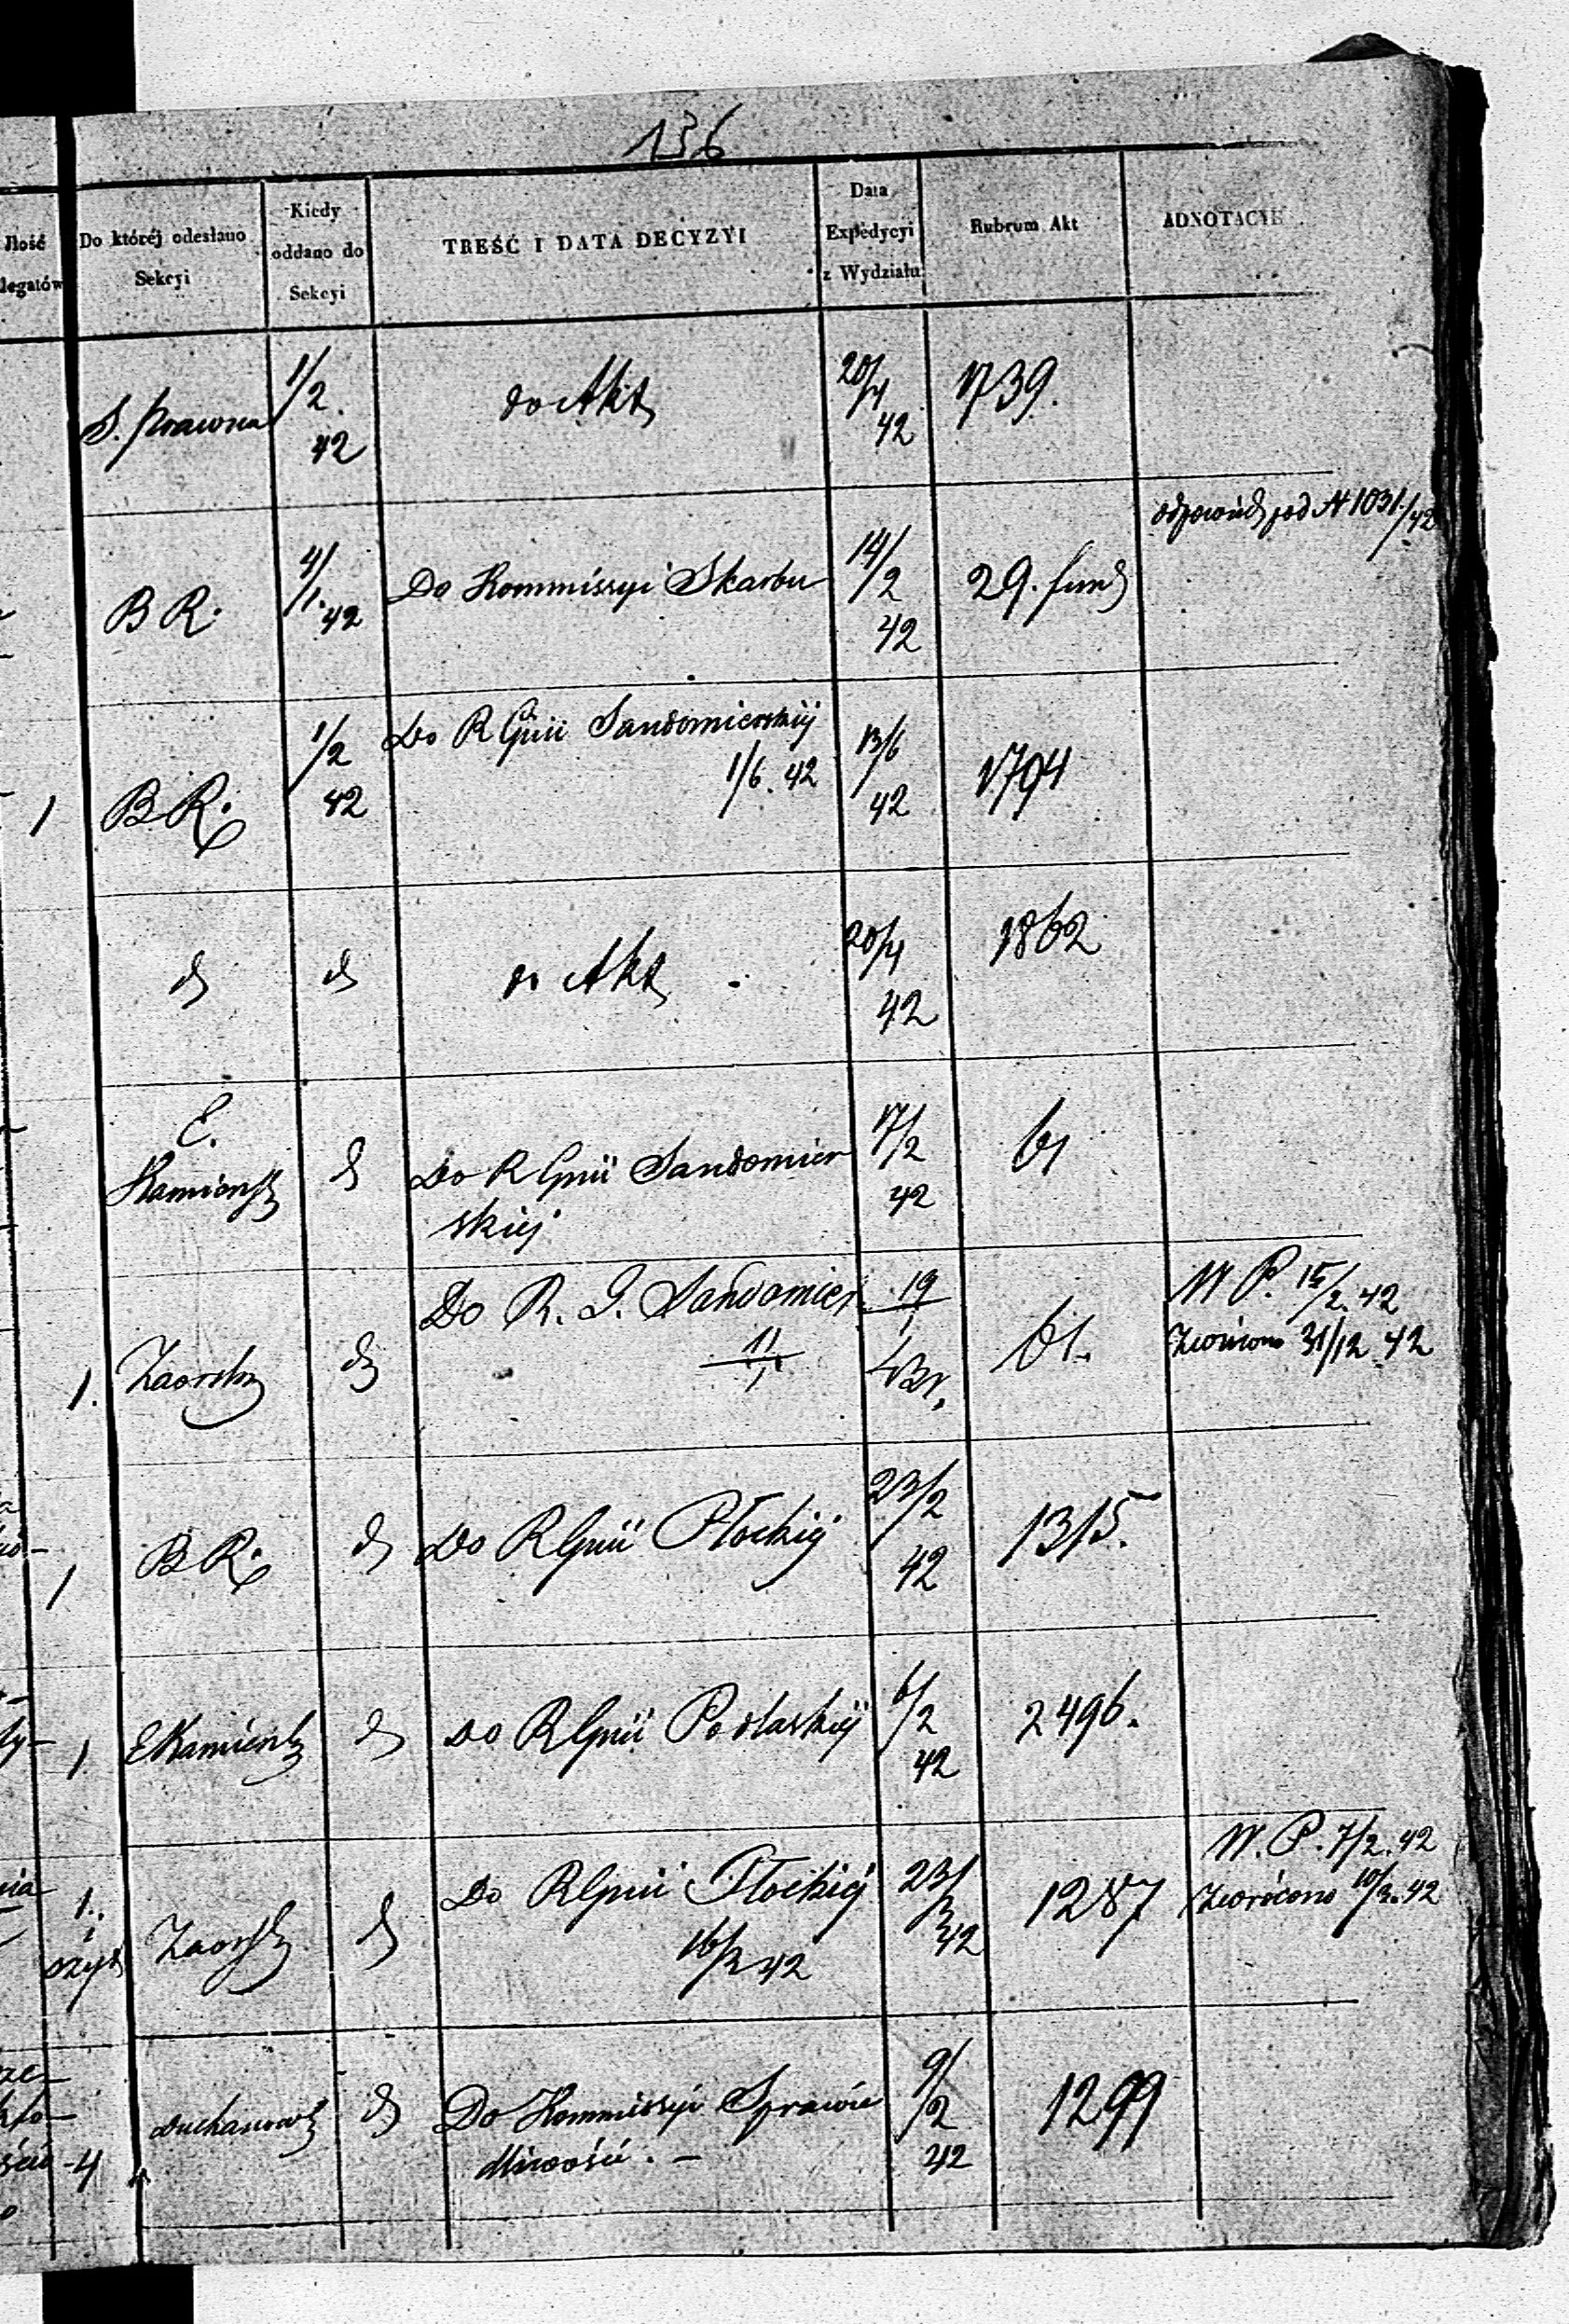 136
Ilość
legatów
Do któréj odesłano
Sekcyi
Kiedy
oddano do
Sekcyi
TREŚĆ I DATA DECYZYI
Data
Expedycyi
z Wydziału
Rubrum Akt
ADNOTACYE
S. Prawna
1/2. 42
do Akt
20/4 42
1739.
B R.
4/1. 42
Do Kommissyi Skarbu
14/2 42
29. fund
odpowiedź pod N 1031/42
1
B R.
1/2 42
Do R Gnii Sandomierskiej
1/6. 42
13/6 42
1794
d
d
do Akt
20/4 42
1862
E.
Kamieńsk
d
Do R Gnii Sandomier
skiej
17/2 42
61
1.
Zaorsk
d
Do R. G. Sandomier
11/1
19/1
61.
W P. 15/2. 42
Zwrócono 31/12 42
1
B R.
d
Do R Gnii Płockiej
23/2 42
1315.
1
E Kamieńsk
d
Do R Gnii Podlaskiej
6/2 42
2496.
nia
1.
i
Zaorsk
d
Do R Gnii Płockiej
16/2 42
23/2 42
1287
W. P. 7/2. 42
Zwrócono 10/2. 42
4
Duchanowsk
d
Do Kommissyi Sprawie
dliwości. –
9/2 42
1299